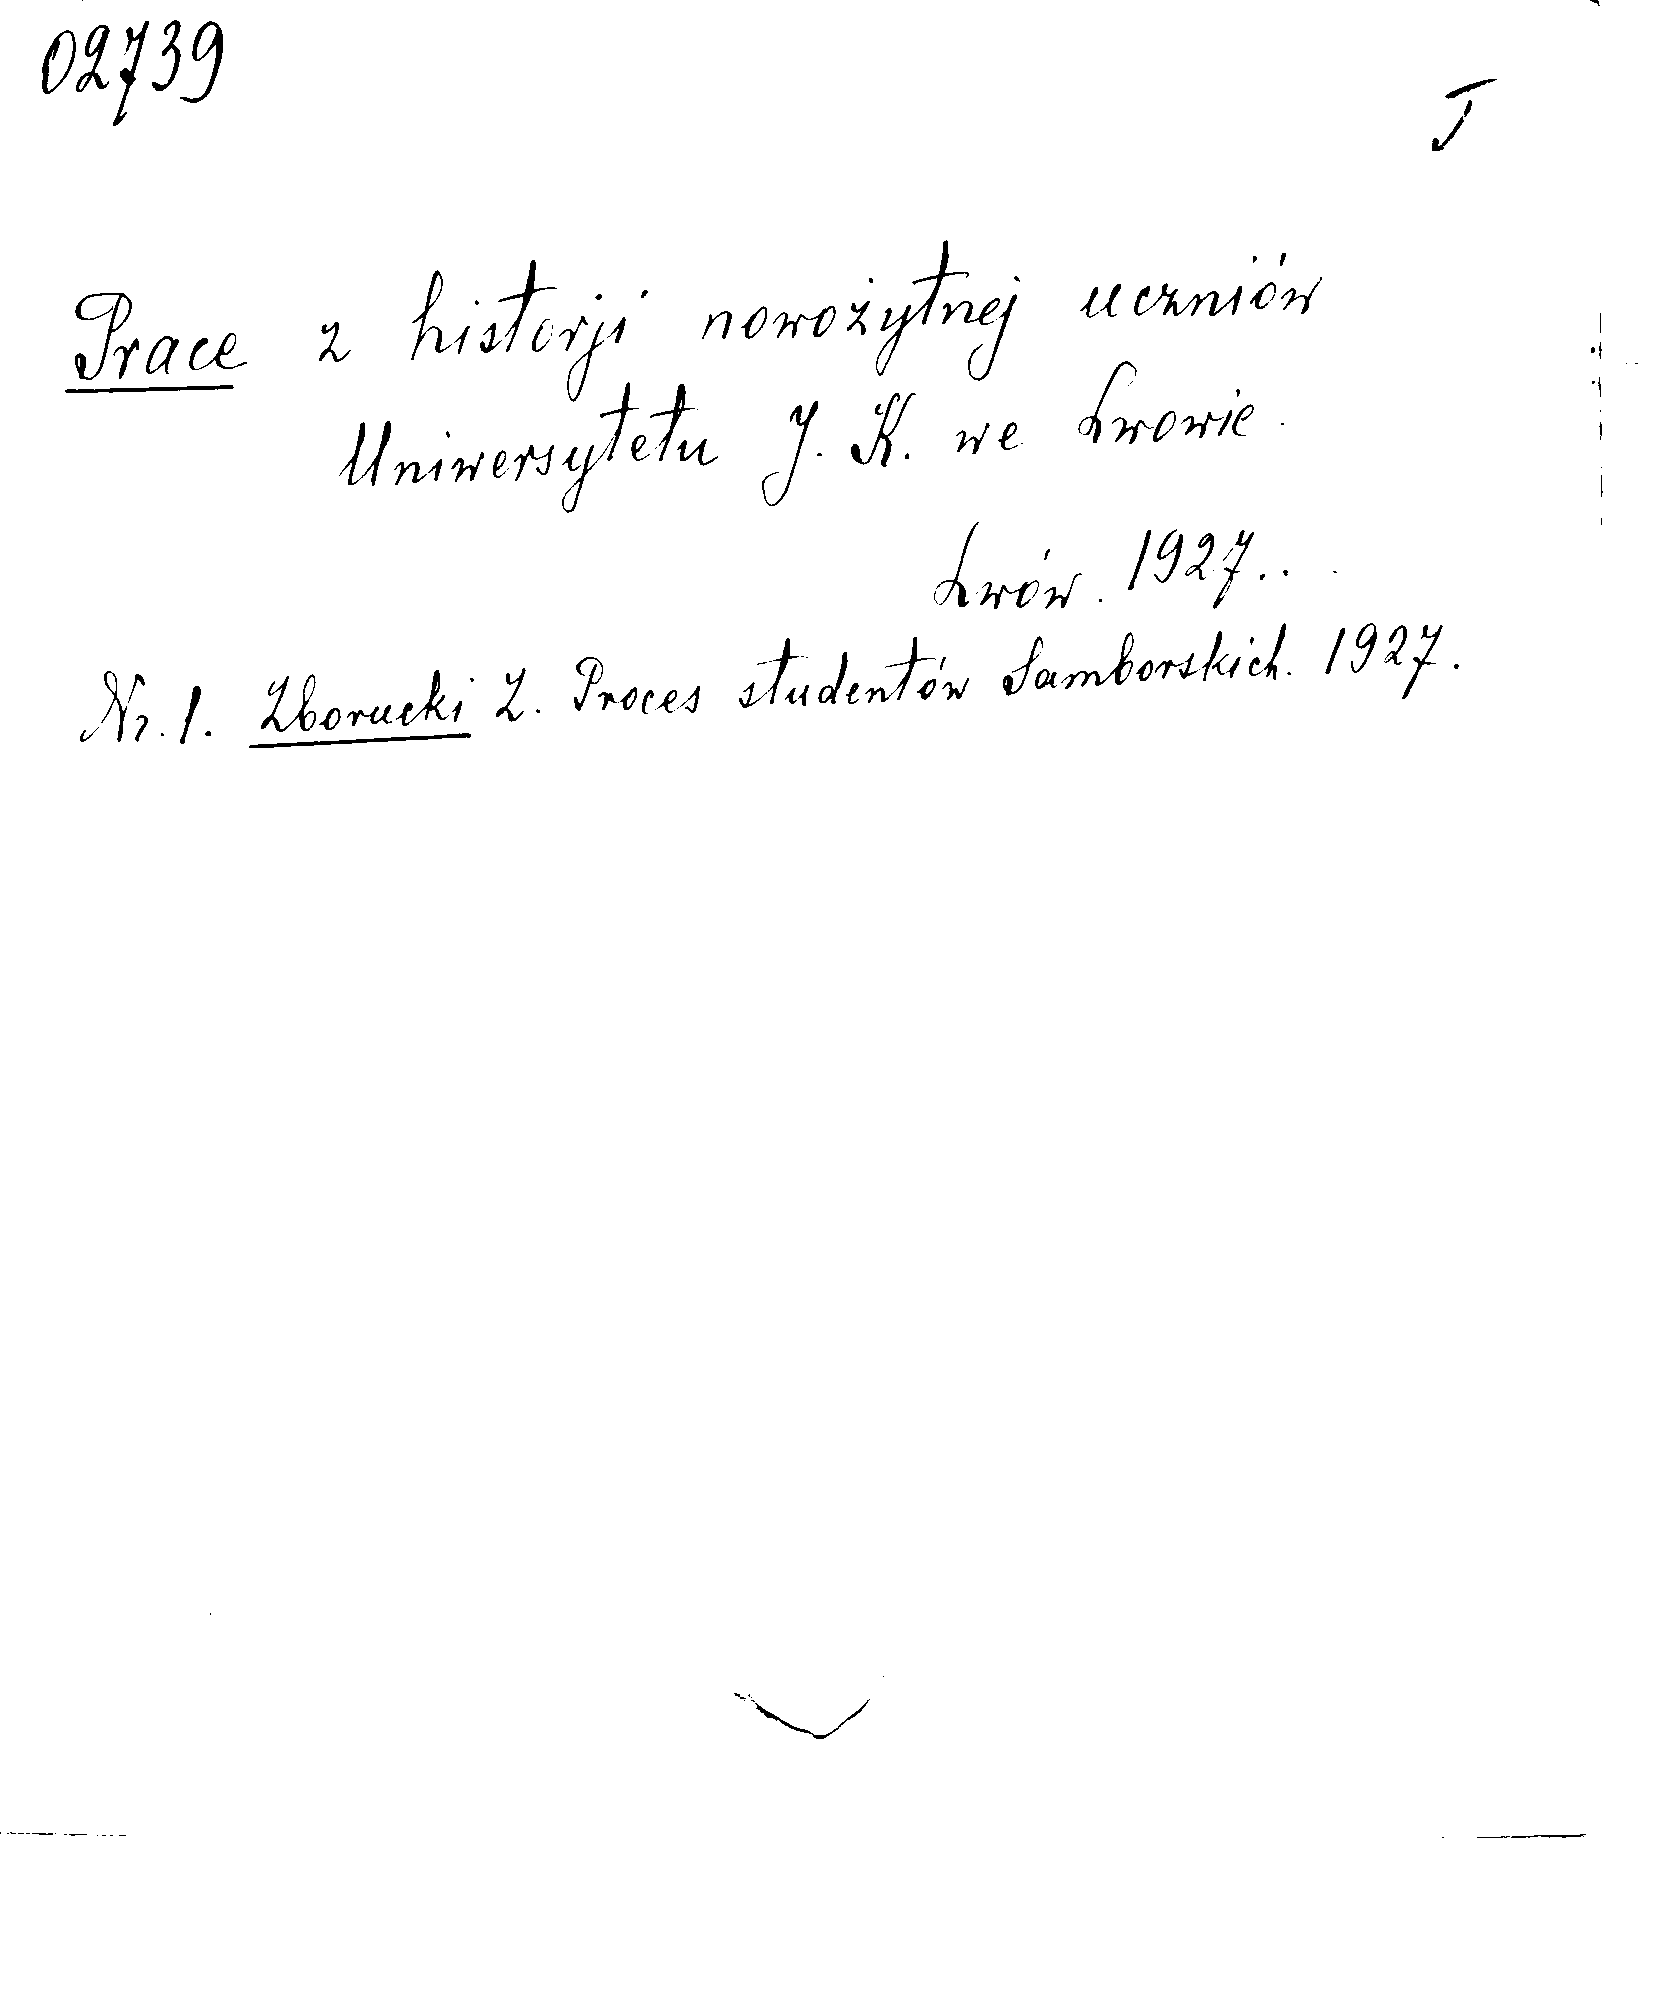 02739
I
Prace z historji nowożytnej uczniów
Uniwersytetu J. K. we Lwowie.
Lwów. 1927..
Nr. 1. Zborucki Z. Proces studentów Samborskich. 1927.